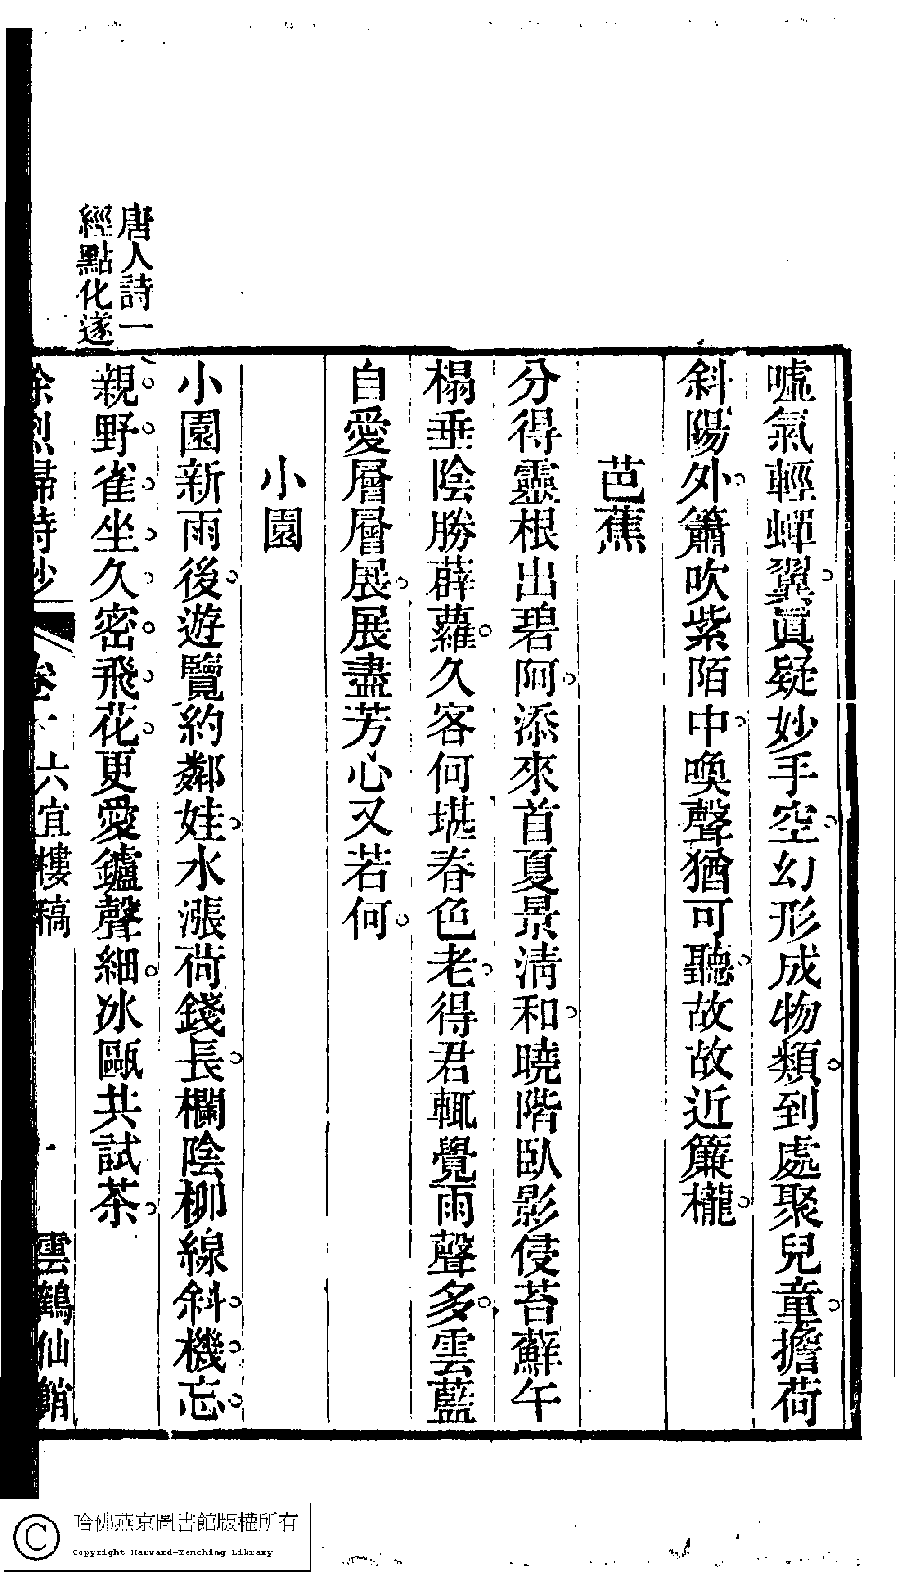 唐人詩一
經點化遂
噓氣輕蟬翼眞疑妙手空幻形成物類到處聚兒童擔荷
斜陽外簫吹紫陌中喚聲猶可聽故故近簾櫳
芭蕉
分得靈根出碧阿添來首夏景淸和曉階臥影侵苔蘚午
榻垂陰勝薜蘿久客何堪春色老得君輒覺雨聲多雲藍
自愛層層展展盡芳心又若何
小園
小園新雨後遊覽約鄰娃水漲荷錢長欄陰柳線斜機忘
親野雀坐久密飛花更愛鑪聲細冰甌共試茶
徐烈婦詩鈔
卷一
六宜樓稿
一
雲鶴仙館
哈佛燕京圖書館版權所有
Copyright Harvard-Yenching Library